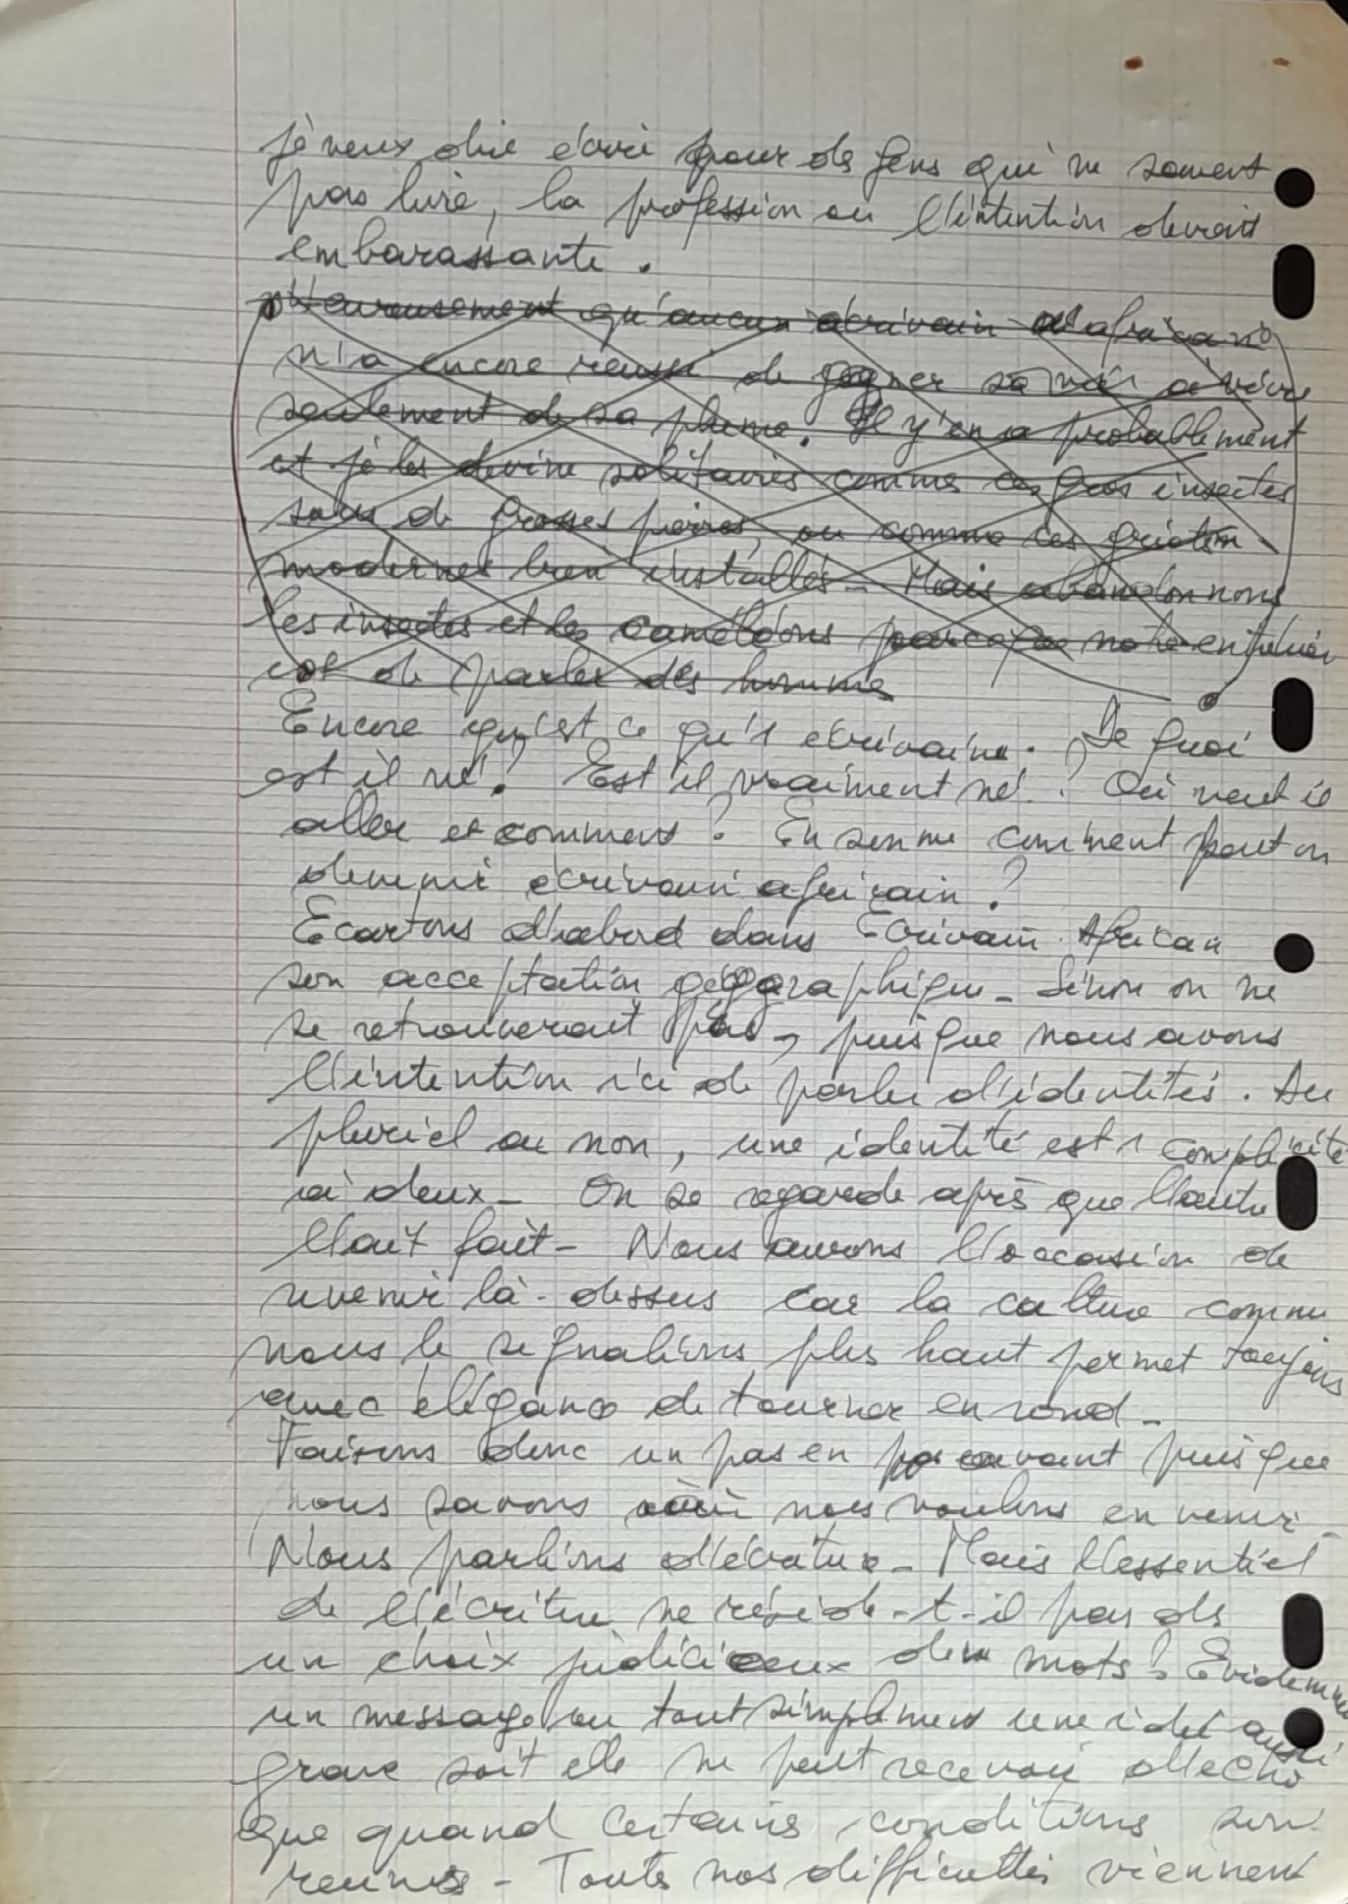 je veux dire écrire pour des gens qui ne savent
pas lire, la profession ou l'intention devait
embarassante.
Heureusement qu'aucun écrivain africain
n'a encore réussi de gagner sa vie à vivre
seulement de sa plume. Il y'en a probablement
et je les devine solitaires comme ces gros insectes
sous de grosses pierres, ou comme ces griots
modernes bien installés - Mais abandonnons
les insectes et les caméléons parce que notre
est de parler des homme
Encore qu'est ce qu'1 écrivain. De quoi
est il né? Est il vraiment né? Où veut il
aller et comment? En somme comment peut on
devenir écrivain africain?
Ecartons d'abord dans Ecrivain Africain
son acceptation géographique - Sinon on ne
se retrouverait pas, puisque nous avons
l'intention ici de parler d'identités. Au
pluriel ou non, une identité est 1 complicité
à deux - On se regarde après que l'autre
l'ait fait - Nous aurons l'occasion de
revenir là-dessus car la culture comme
nous le signalions plus haut permet toujours
avec élégance de tourner en rond -
Faisons donc un pas en avant puisque
nous savons où nous voulons en venir -
Nous parlions d'écriture - Mais l'essentiel
de l'écriture ne réside-t-il pas ds
un choix judicieux des mots? Evidemment
un message ou tout simplement une idée aussi
grave soit elle ne peut recevoir d'écho
que quand certains conditions son
reunies - Toutes nos difficultés viennent